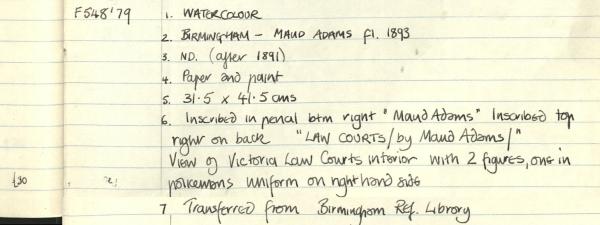 F548'79
1. WATERCOLOUR
2. BIRMINGHAM - MAUD ADAMS fl. 1893
3. ND. (after 1891)
4. Paper and paint
5. 31.5 x 41.5 cms
6. Inscribed in pencil btm right "Maud Adams" Inscribed top
right on back "LAW COURTS/by Maud Adams/"
View of Victoria Law Courts interior with 2 figures, one in
£30
policemans uniform on right hand side
7 Transferred from Birmingham Ref. Library